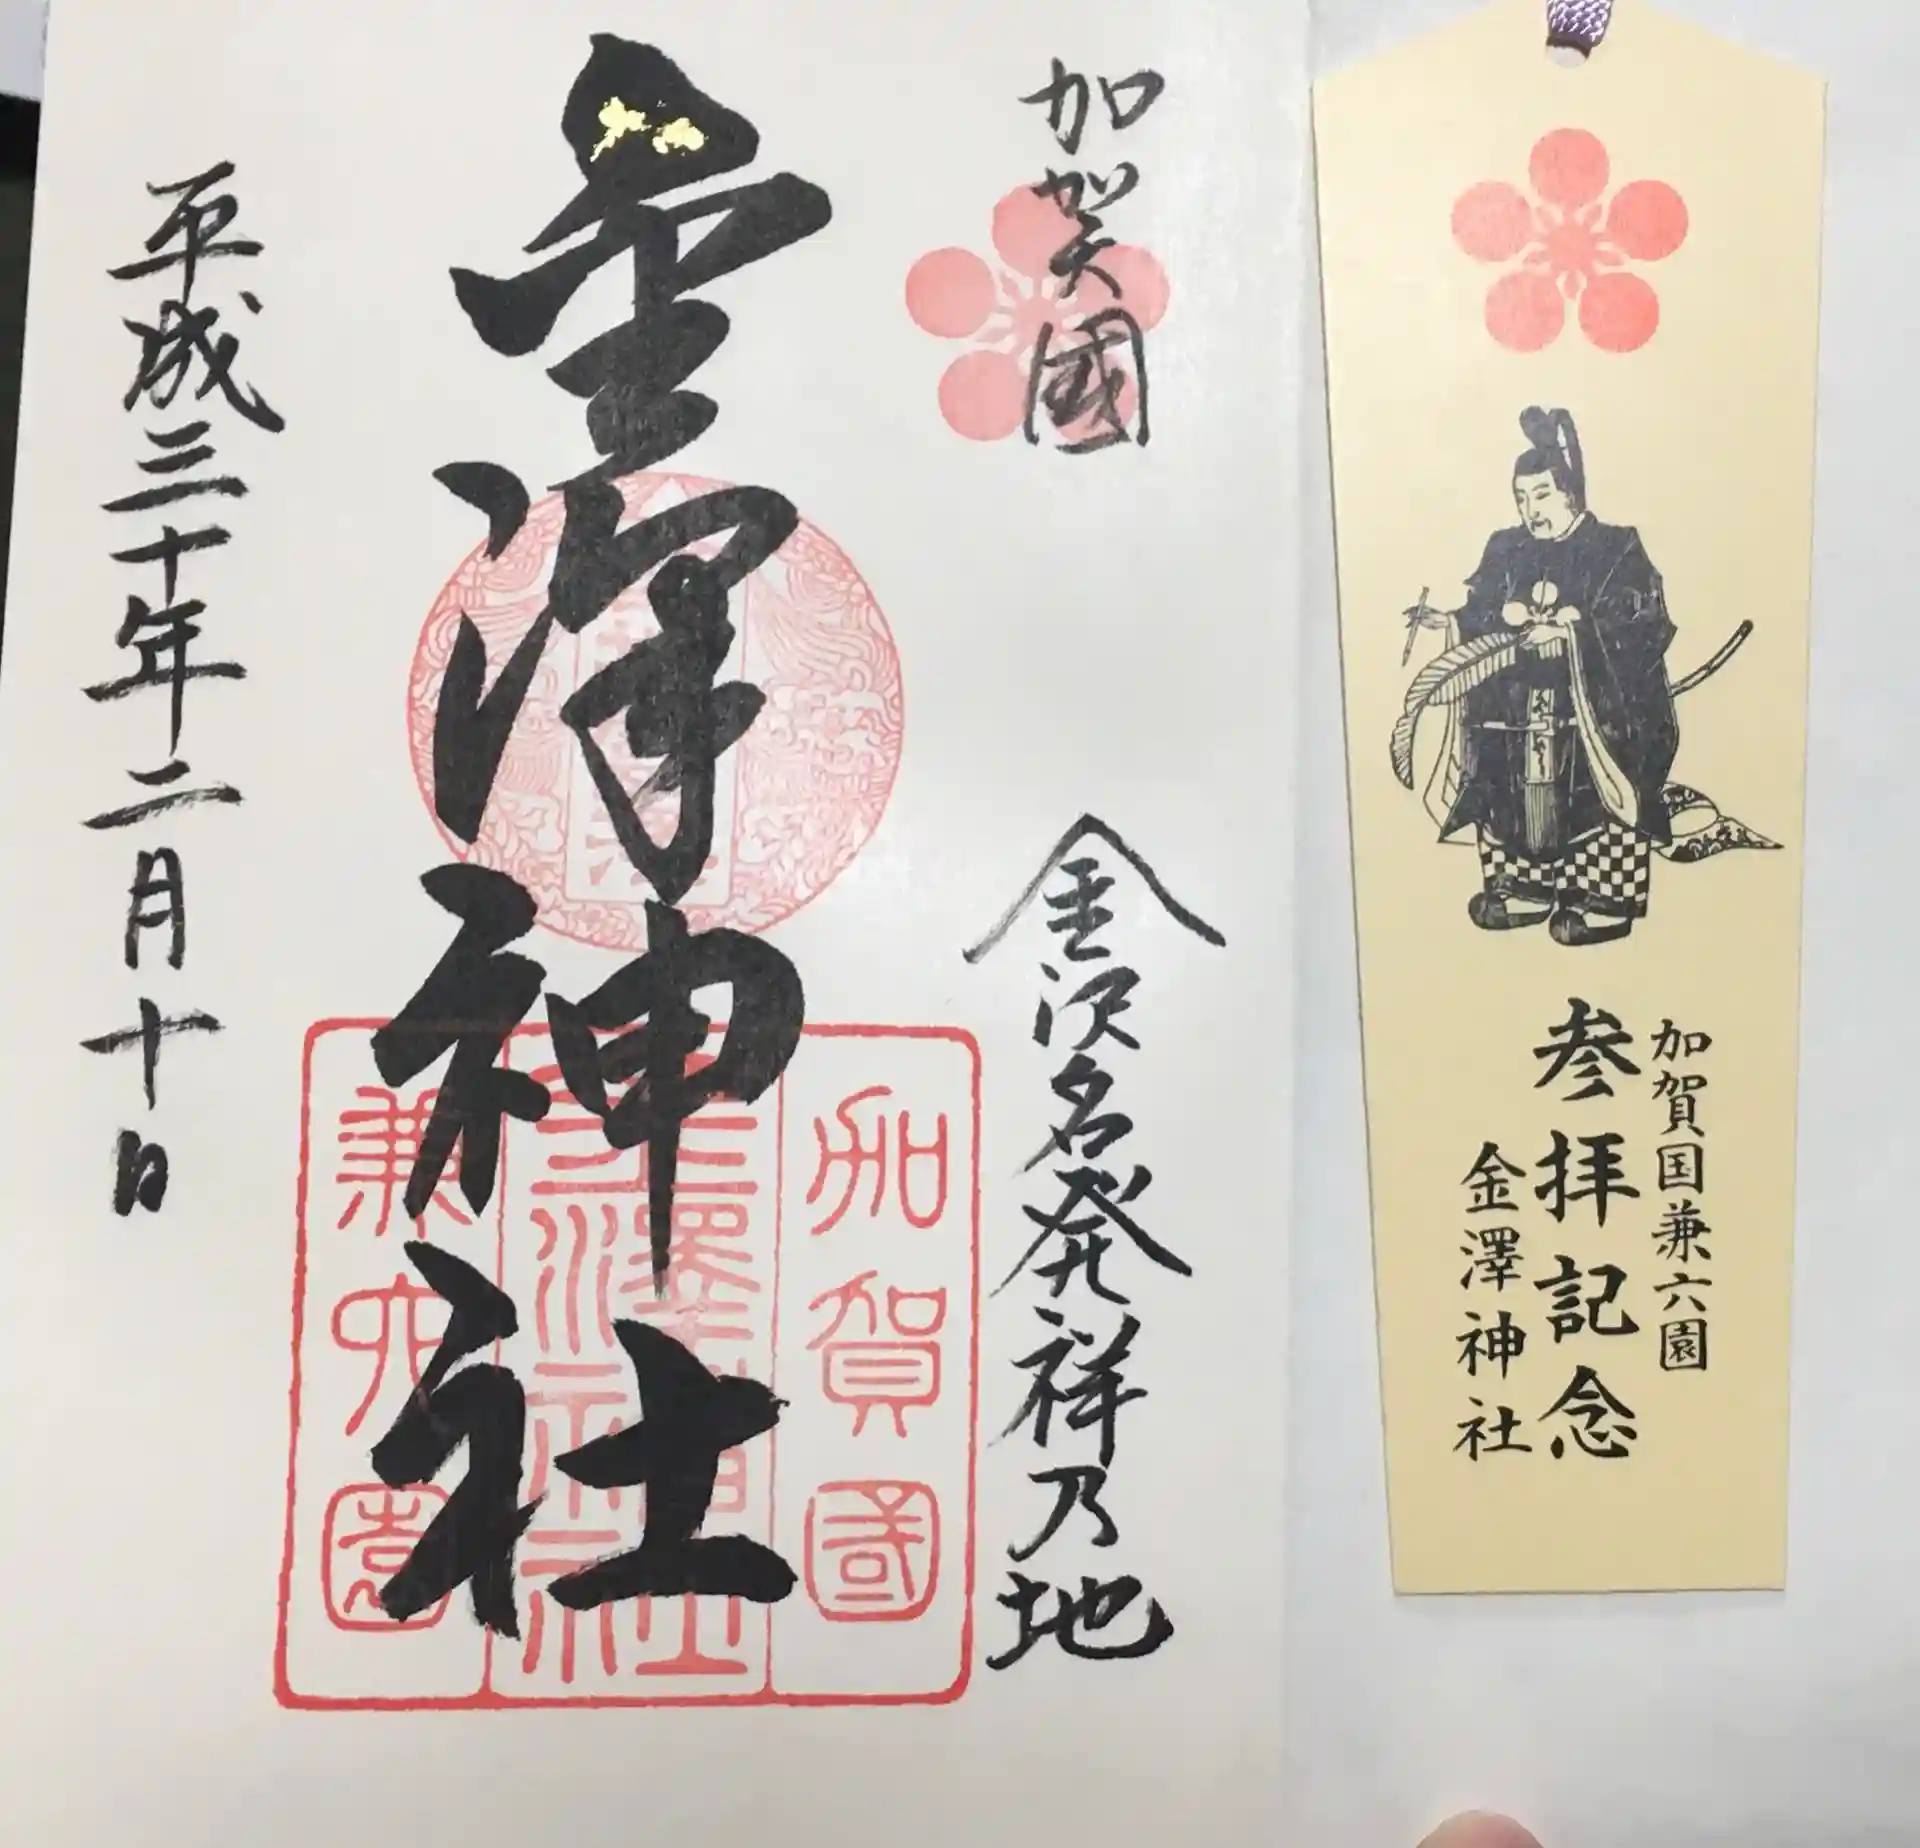 加賀國
金沢名発祥乃地
金澤神社
平成三十年二月十日
加賀國
金澤神社
兼六園
加賀国兼六園
参拝記念
金澤神社